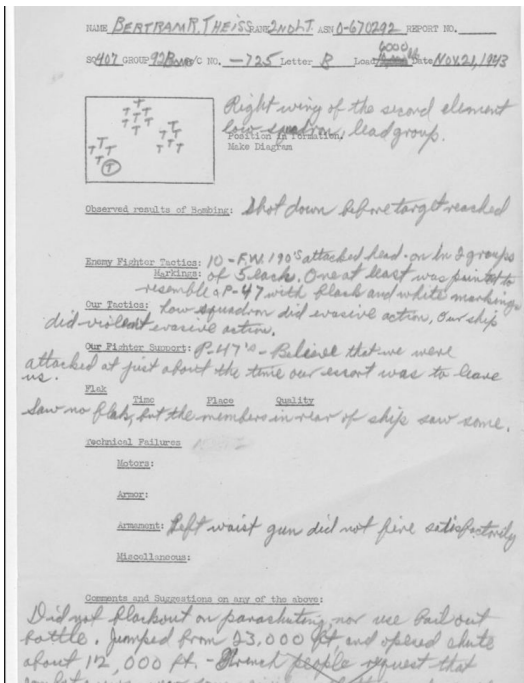 NAME BERTRAM R. THEISS RANK 2ND LT. ASN O-670292 REPORT NO.
SQ 407 GROUP 92 BOMB A/C NO. -725 Letter R Load 6000 Date NOV. 21, 1943
Right wing of the second element
low squadron, lead group.
Position in Formation,
Make Diagram
T T T T T T T T T T T T T T T T T T
Observed results of Bombing: Shot down before target reached
Enemy Fighter Tactics: 10-F.W. 190's attacked head-on in 2 groups
Markings: of 5 each. One at least was painted to
resemble a P-47 with black and white markings
Our Tactics: Low squadron did evasive action, Our ship
did violent evasive action.
Our Fighter Support: P-47's - Believe that we were
attacked at just about the time our escort was to leave
us.
Flak
Time Place Quality
Saw no flak, but the members in rear of ship saw some.
Technical Failures
Motors:
Armor:
Armament: Left waist gun did not fire satisfactorily
Miscellaneous:
Comments and Suggestions on any of the above:
Did not blackout on parachuting, nor use bail out
bottle. Jumped from 23,000 ft and opened chute
about 12,000 ft. - French people request that